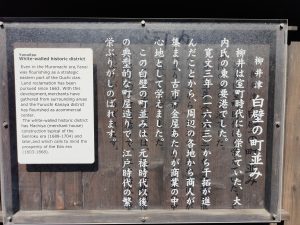 Yanaitsu
White-walled historic district
Even in the Muromachi era, Yanai
was flourishing as a strategic
eastern port of the Ouchi clan.
Land reclamation has been
pursued since 1663. With this
development, merchants have
gathered from surrounding areas
and the Furuichi-Kanaya district
has flourished as commercial
center.
The white-walled historic district
has Machiya (merchant house)
construction typical of the
Genroku era (1688-1704) and
later, and which calls to mind the
prosperity of the Edo era
(1603-1868).
柳井津 白壁の町並み
柳井は室町時代にも栄えていた、大
内氏の東の要港でした。
寛文三年(一六六三)から干拓が進
んだことから、周辺の各地から商人が
集まり、古市・金屋あたりが商業の中
心地として栄えました。
この白壁の町並みは、元禄時代以後
の典型的な町屋造りで、江戸時代の繁
栄ぶりがしのばれます。